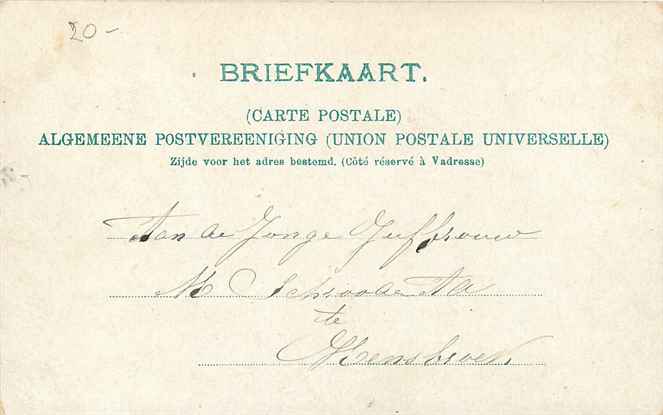 20-
BRIEFKAART.
(CARTE POSTALE)
ALGEMEENE POSTVEREENIGING (UNION POSTALE UNIVERSELLE)
Zijde voor het adres bestemd. (Côté réservé à Vadresse)
Aan de Jonge Juffrouw
M
te
Mensbroek